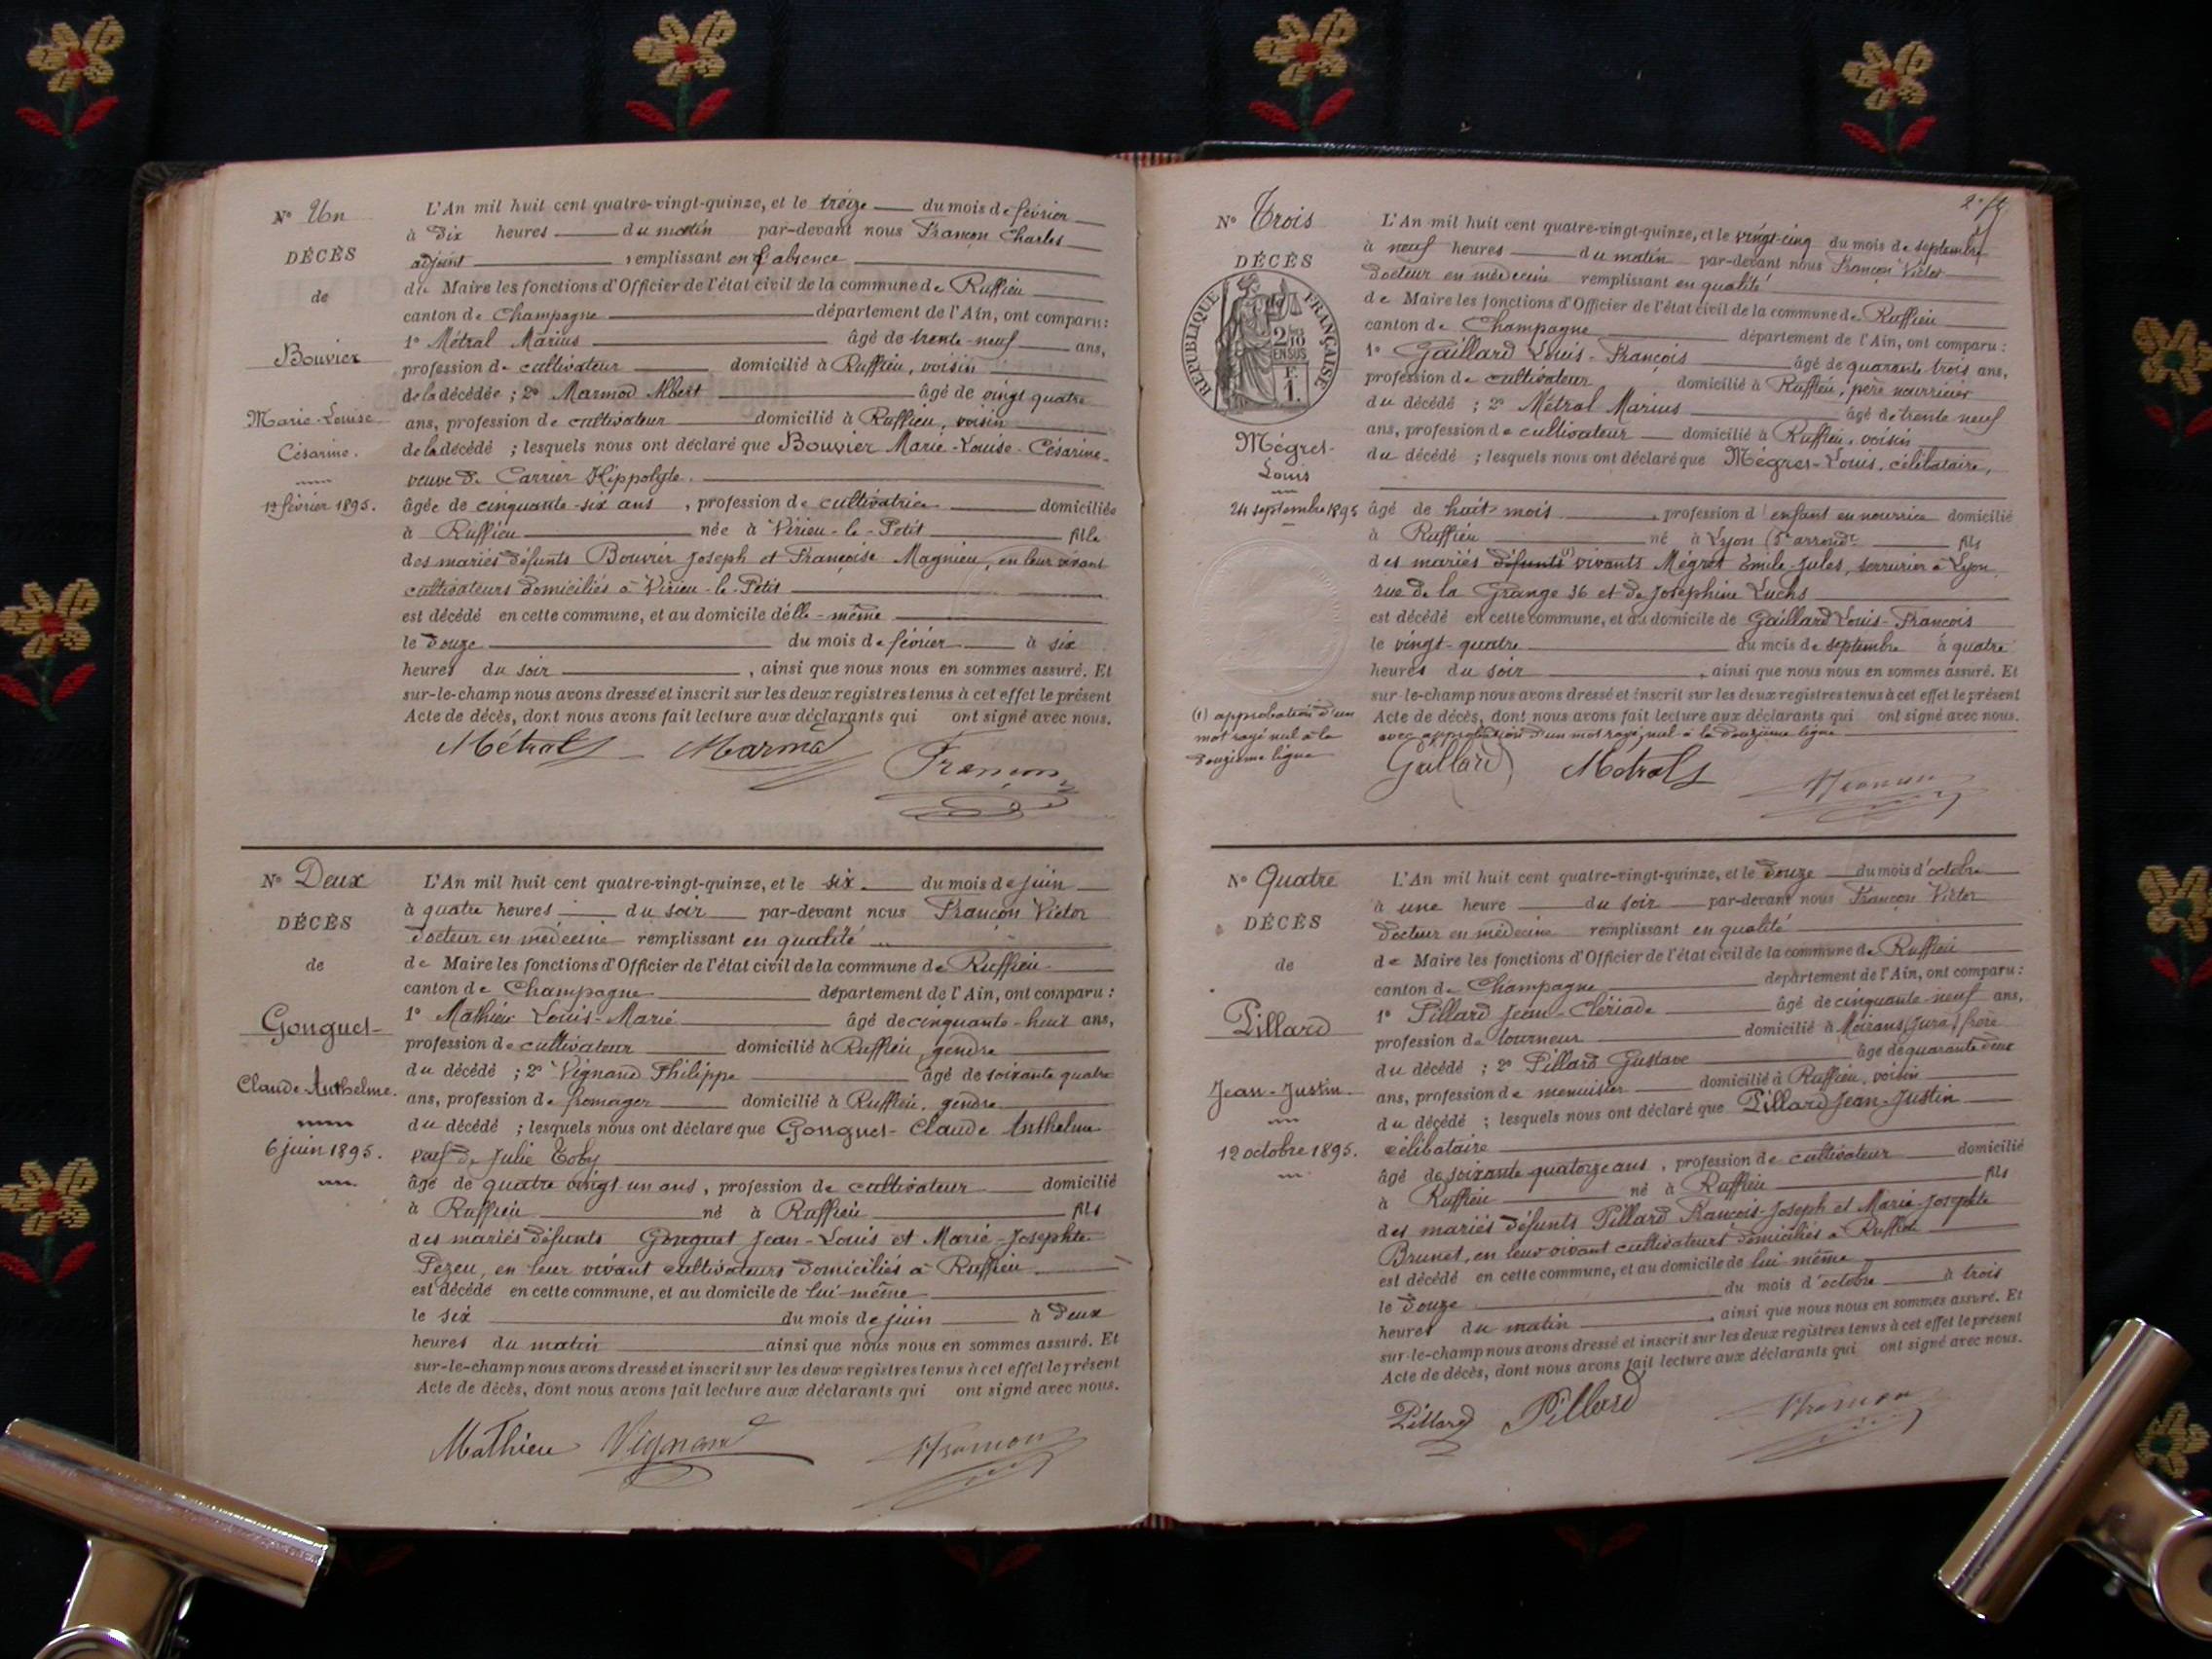 N° Un
DÉCÈS
de
Bouvier
Marie-Louise
Césarine.
12 février 1895.
L'An mil huit cent quatre-vingt-quinze, et le treize du mois de février
à dix heures du matin par-devant nous Françon Charles
adjoint remplissant en l'absence
du Maire les fonctions d'Officier de l'état civil de la commune de Ruffieu
canton de Champagne département de l'Ain, ont comparu:
1° Métral Marius âgé de trente-neuf ans,
profession de cultivateur domicilié à Ruffieu, voisin
de la décédée ; 2° Marmod Albert âgé de vingt quatre
ans, profession de cultivateur domicilié à Ruffieu, voisin
de la décédé ; lesquels nous ont déclaré que Bouvier Marie-Louise-Césarine-
veuve de Carrier Hippolyte.
âgée de cinquante-six ans, profession de cultivatrice domiciliée
à Ruffieu née à Virieu-le-Petit fille
des mariés défunts Bouvier Joseph et Françoise Magnieu, en leur vivant
cultivateurs domiciliés à Virieu-le-Petit
est décédé en cette commune, et au domicile d'elle-même
le douze du mois de février à six
heures du soir, ainsi que nous nous en sommes assuré. Et
sur-le-champ nous avons dressé et inscrit sur les deux registres tenus à cet effet le présent
Acte de décès, dont nous avons fait lecture aux déclarants qui ont signé avec nous.
Métral Marmod Françon
N° Deux
DÉCÈS
de
Gonguet-
Claude-Anthelme.
6 juin 1895.
L'An mil huit cent quatre-vingt-quinze, et le six du mois de juin
à quatre heures du soir par-devant nous Françon Victor
docteur en médecine remplissant en qualité
de Maire les fonctions d'Officier de l'état civil de la commune de Ruffieu
canton de Champagne département de l'Ain, ont comparu :
1° Mathieu Louis-Marie âgé de cinquante-huit ans,
profession de cultivateur domicilié à Ruffieu, gendre
du décédé ; 2° Vignand Philippe âgé de soixante quatre
ans, profession de fromager domicilié à Ruffieu, gendre
du décédé ; lesquels nous ont déclaré que Gonguet-Claude Anthelme
veuf de Julie Toby
âgé de quatre vingt un ans, profession de cultivateur domicilié
à Ruffieu né à Ruffieu fils
des mariés défunts Gonguet Jean-Louis et Marie-Josephte
Pezeu, en leur vivant cultivateurs domiciliés à Ruffieu
est décédé en cette commune, et au domicile de lui-même
le six du mois de juin à deux
heures du matin ainsi que nous nous en sommes assuré. Et
sur-le-champ nous avons dressé et inscrit sur les deux registres tenus à cet effet le présent
Acte de décès, dont nous avons fait lecture aux déclarants qui ont signé avec nous.
Mathieu Vignand Françon
N° Trois
DÉCÈS
RÉPUBLIQUE FRANÇAISE
2/10
EN SUS
F.
1.
Mégret-
Louis
24 septembre 1895
(1) approbation d'un
mot rayé nul à la
douzième ligne
L'An mil huit cent quatre-vingt-quinze, et le vingt-cinq du mois de septembre
à neuf heures du matin par-devant nous Françon Victor
docteur en médecine remplissant en qualité
de Maire les fonctions d'Officier de l'état civil de la commune de Ruffieu
canton de Champagne département de l'Ain, ont comparu :
1° Gaillard Louis-François âgé de quarante trois ans,
profession de cultivateur domicilié à Ruffieu, père nourricier
du décédé ; 2° Métral Marius âgé de trente neuf
ans, profession de cultivateur domicilié à Ruffieu, voisin
du décédé ; lesquels nous ont déclaré que Mégret-Louis, célibataire,
âgé de huit mois, profession d'enfant en nourrice domicilié
à Ruffieu né à Lyon (5e arrondt fils
des mariés défunts (1) vivants Mégret Émile-Jules, serrurier à Lyon,
rue de la Grange 36 et de Joséphine Luchs
est décédé en cette commune, et au domicile de Gaillard Louis-François
le vingt-quatre du mois de septembre à quatre
heures du soir, ainsi que nous nous en sommes assuré. Et
sur-le-champ nous avons dressé et inscrit sur les deux registres tenus à cet effet le présent
Acte de décès, dont nous avons fait lecture aux déclarants qui ont signé avec nous.
avec approbation d'un mot rayé nul à la douzième ligne
Gaillard Métral Françon
N° Quatre
DÉCÈS
de
Pillard
Jean-Justin.
12 octobre 1895.
L'An mil huit cent quatre-vingt-quinze, et le douze du mois d'octobre
à une heure du soir par-devant nous Françon Victor
docteur en médecine remplissant en qualité
de Maire les fonctions d'Officier de l'état civil de la commune de Ruffieu
canton de Champagne département de l'Ain, ont comparu :
1° Pillard Jean-Clériade âgé de cinquante-neuf ans,
profession de tourneur domicilié à Moirans (Jura) frère
du décédé ; 2° Pillard Gustave âgé de quarante deux
ans, profession de menuisier domicilié à Ruffieu, voisin
du décédé ; lesquels nous ont déclaré que Pillard Jean-Justin
célibataire
âgé de soixante quatorze ans, profession de cultivateur domicilié
à Ruffieu né à Ruffieu fils
des mariés défunts Pillard François-Joseph et Marie-Josephte
Brunet, en leur vivant cultivateurs domiciliés à Ruffieu
est décédé en cette commune, et au domicile de lui-même
le douze du mois d'octobre à trois
heures du matin, ainsi que nous nous en sommes assuré. Et
sur-le-champ nous avons dressé et inscrit sur les deux registres tenus à cet effet le présent
Acte de décès, dont nous avons fait lecture aux déclarants qui ont signé avec nous.
Pillard Pillard Françon